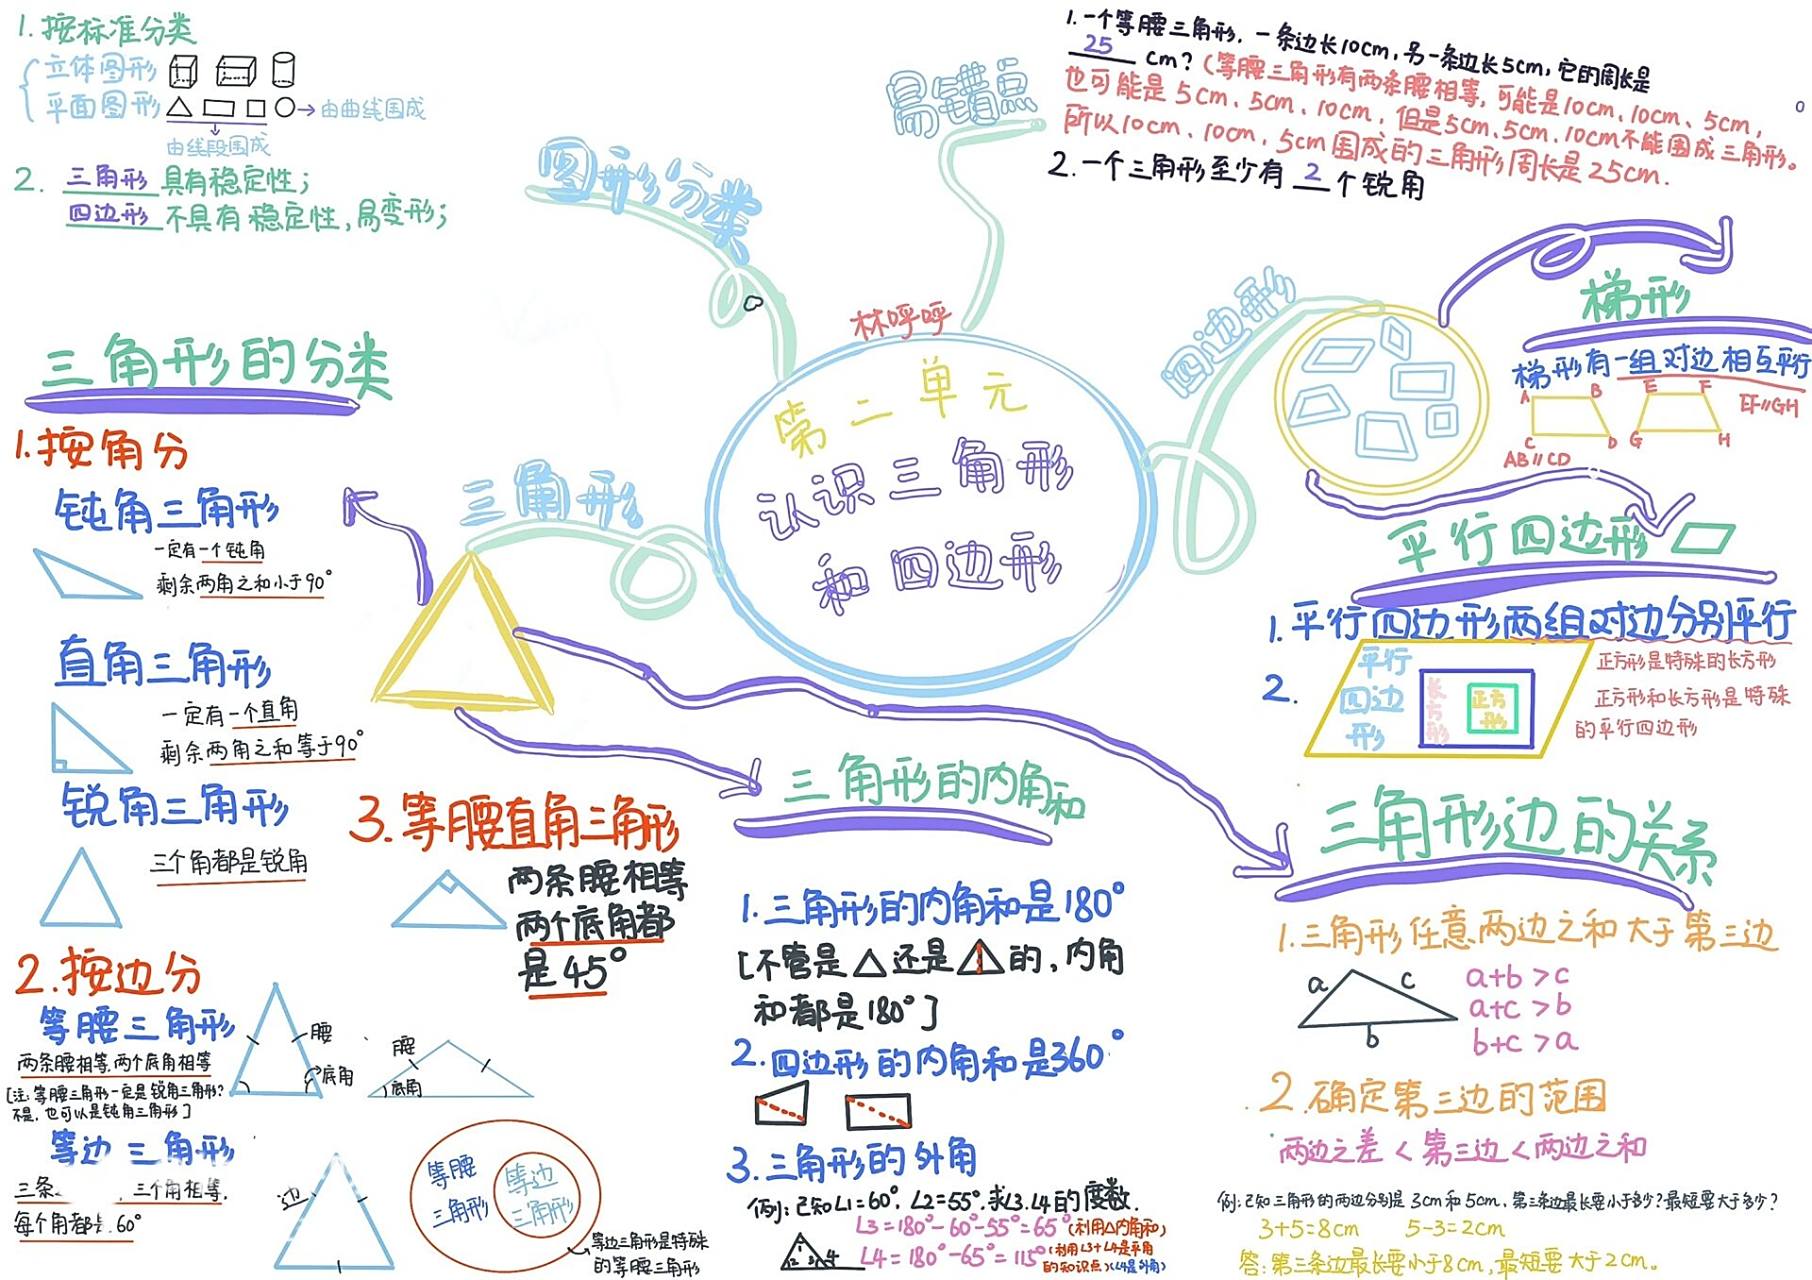 1.按标准分类
立体图形
平面图形
由曲线围成
由线段围成
2. 三角形 具有稳定性；
四边形 不具有稳定性，易变形；
图形分类
易错点
1.一个等腰三角形，一条边长10cm，另一条边长5cm，它的周长是
25 cm？（等腰三角形有两条腰相等，可能是10cm、10cm、5cm，
也可能是5cm、5cm、10cm，但是5cm、5cm、10cm不能围成三角形。
所以10cm、10cm、5cm围成的三角形周长是25cm.
2.一个三角形至少有 2 个锐角
林呼呼
第二单元
认识三角形
和四边形
四边形
梯形
梯形有一组对边相互平行
A B
C D
AB∥CD
E F
G H
EF∥GH
平行四边形
1.平行四边形两组对边分别平行
2.
平行
四边
形
长方形
正方形
正方形是特殊的长方形
正方形和长方形是特殊
的平行四边形
三角形
三角形的分类
1.按角分
钝角三角形
一定有一个钝角
剩余两角之和小于90°
直角三角形
一定有一个直角
剩余两角之和等于90°
锐角三角形
三个角都是锐角
2.按边分
等腰三角形
两条腰相等，两个底角相等
[注：等腰三角形一定是锐角三角形？
不是，也可以是钝角三角形]
腰
底角
腰
底角
等边三角形
三条 ，三个角相等，
每个角都是60°
边
等腰
三角形
等边
三角形
等边三角形是特殊
的等腰三角形
3.等腰直角三角形
两条腰相等
两个底角都
是45°
三角形的内角和
1.三角形的内角和是180°
[不管是△还是△的，内角
和都是180°]
2.四边形的内角和是360°
3.三角形的外角
例：已知∠1=60°，∠2=55°，求∠3.∠4的度数.
∠3=180°-60°-55°=65°（利用△内角和）
∠4=180°-65°=115°（利用∠3+∠4是平角
的知识点）（∠4是外角）
1
2 3 4
三角形边的关系
1.三角形任意两边之和大于第三边
a c
b
a+b>c
a+c>b
b+c>a
2.确定第三边的范围
两边之差<第三边<两边之和
例：已知三角形的两边分别是3cm和5cm，第三条边最长要小于多少？最短要大于多少？
3+5=8cm 5-3=2cm
答：第三条边最长要小于8cm，最短要大于2cm。